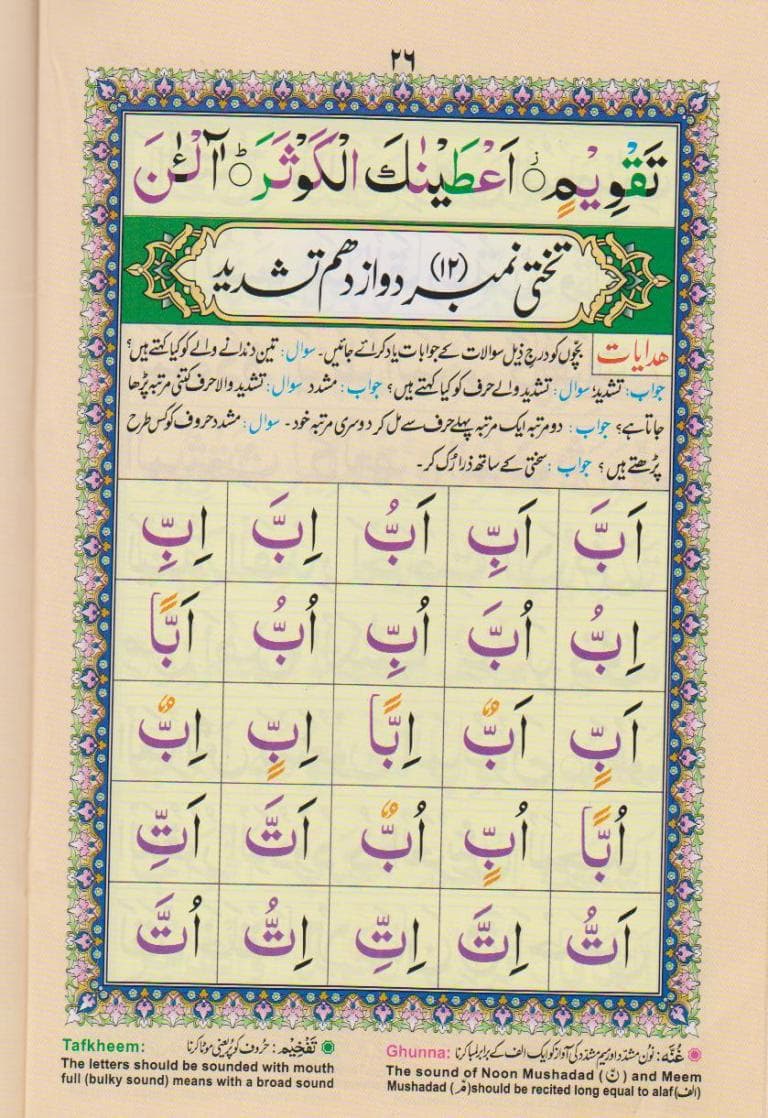 ۲۶
تَقْوِيْمٍ ۙ اَعْطَيْنٰكَ الْكَوْثَرَ ؕ آٰلْـٰٔنَ
تختی نمبر (۱۲) دوازدهم تشدید
هدایات بچّوں کو درج ذیل سوالات کے جوابات یاد کرائے جائیں۔ سوال: تین دندانے والے کو کیا کہتے ہیں؟
جواب: تشدید؛ سوال: تشدید والے حرف کو کیا کہتے ہیں؟ جواب: مشدد سوال: تشدید والا حرف کتنی مرتبہ پڑھا
جاتا ہے؟ جواب: دو مرتبہ ایک مرتبہ پہلے حرف سے مل کر دوسری مرتبہ خود۔ سوال: مشدد حروف کو کس طرح
پڑھتے ہیں؟ جواب: سختی کے ساتھ ذرا رُک کر۔
اَبَّ اَبِّ اَبُّ اِبَّ اِبِّ
اِبُّ اُبَّ اُبِّ اُبُّ اَبًّا
اَبٍّ اَبٌّ اِبًّا اِبٍّ اِبٌّ
اُبًّا اُبٍّ اُبٌّ اَتَّ اَتِّ
اَتُّ اِتَّ اِتِّ اِتُّ اُتَّ
غُنّه: نون مشدّد اور میم مشدّد کی آواز کو ایک الف کے برابر لمبا کرنا
Ghunna:
The sound of Noon Mushadad (نّ) and Meem
Mushadad (مّ) should be recited long equal to alaf (الف)
تَفْخِیْم: حروف کو پُر یعنی موٹا کرنا
Tafkheem:
The letters should be sounded with mouth
full (bulky sound) means with a broad sound